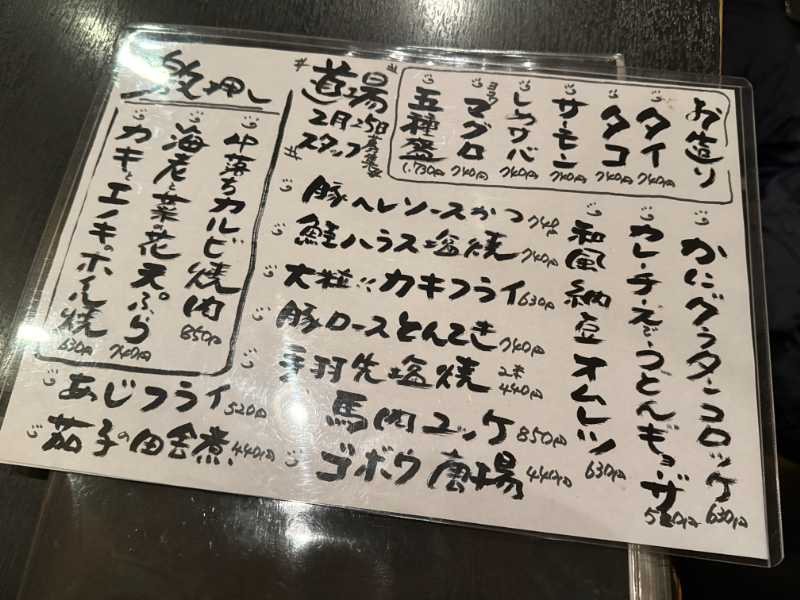 お造り
タイ 740円
タコ 740円
サーモン 740円
しめサバ 740円
マグロ 740円
五種盛 1,730円
道場
2月25日
スタッフ募集
激押し
中落ちカルビ焼肉 850円
海老と菜の花天ぷら 740円
カキとエノキのホイル焼 630円
かにグラタンコロッケ 630円
カレーチーズうどんギョーザ 520円
和風納豆オムレツ 630円
豚ヘレソースかつ 740円
鮭ハラス塩焼 740円
大粒!!カキフライ 630円
豚ロースとんてき 740円
手羽先塩焼 2本 440円
馬肉ユッケ 850円
ゴボウ唐揚 440円
あじフライ 520円
茄子の田舎煮 440円